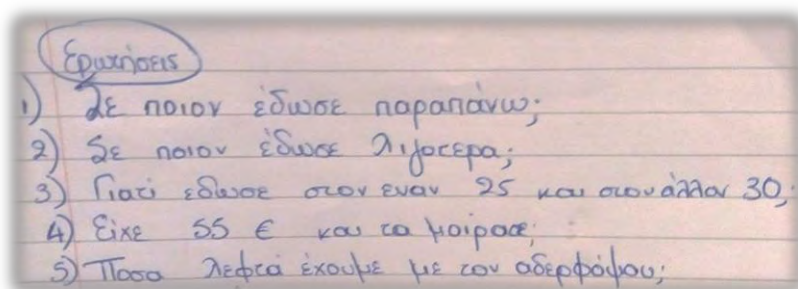 Ερωτήσεις
1) Σε ποιον έδωσε παραπάνω;
2) Σε ποιον έδωσε λιγοτερα;
3) Γιατί εδωσε στον εναν 25 και στον άλλον 30;
4) Είχε 55 € και τα μοίρασε;
5) Ποσα λεφτά έχουμε με τον αδερφόμου;